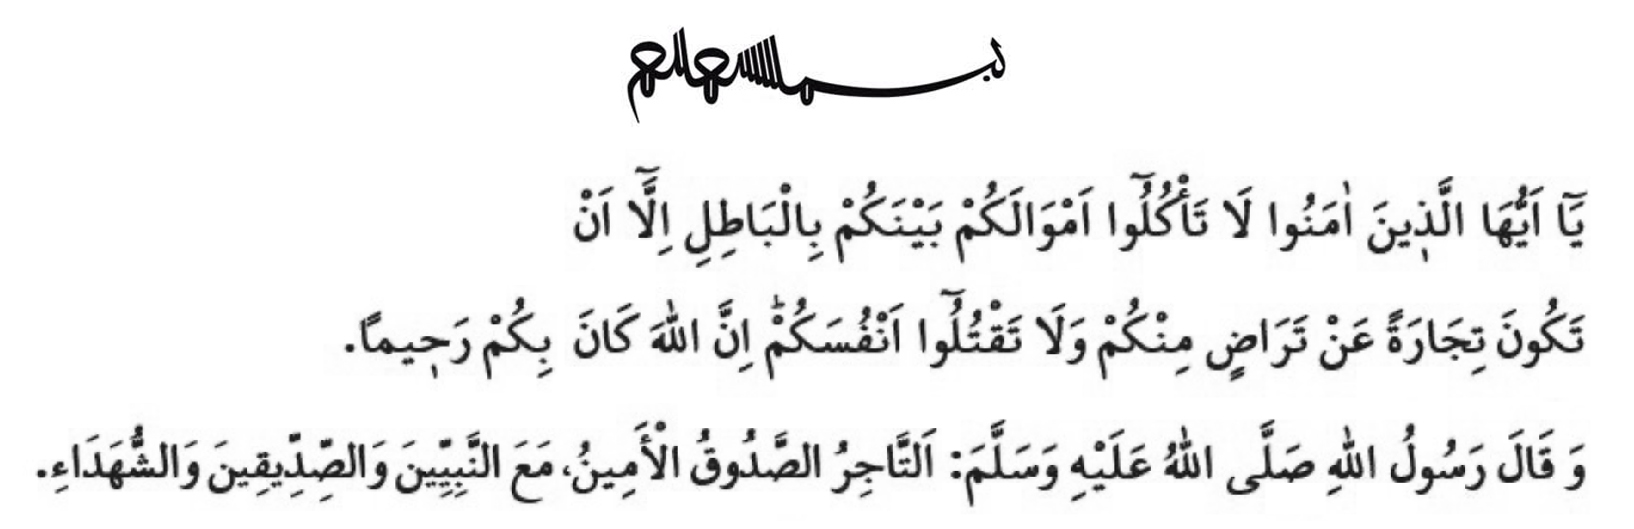 بسم الله الرحمن الرحيم
يَٓا اَيُّهَا الَّذ۪ينَ اٰمَنُوا لَا تَأْكُلُٓوا اَمْوَالَكُمْ بَيْنَكُمْ بِالْبَاطِلِ اِلَّٓا اَنْ
تَكُونَ تِجَارَةً عَنْ تَرَاضٍ مِنْكُمْ وَلَا تَقْتُلُٓوا اَنْفُسَكُمْۜ اِنَّ اللّٰهَ كَانَ بِكُمْ رَح۪يمًا.
وَ قَالَ رَسُولُ اللّٰهِ صَلَّى اللّٰهُ عَلَيْهِ وَسَلَّمَ: اَلتَّاجِرُ الصَّدُوقُ الْأَمِينُ، مَعَ النَّبِيِّينَ وَالصِّدِّيقِينَ وَالشُّهَدَاءِ.